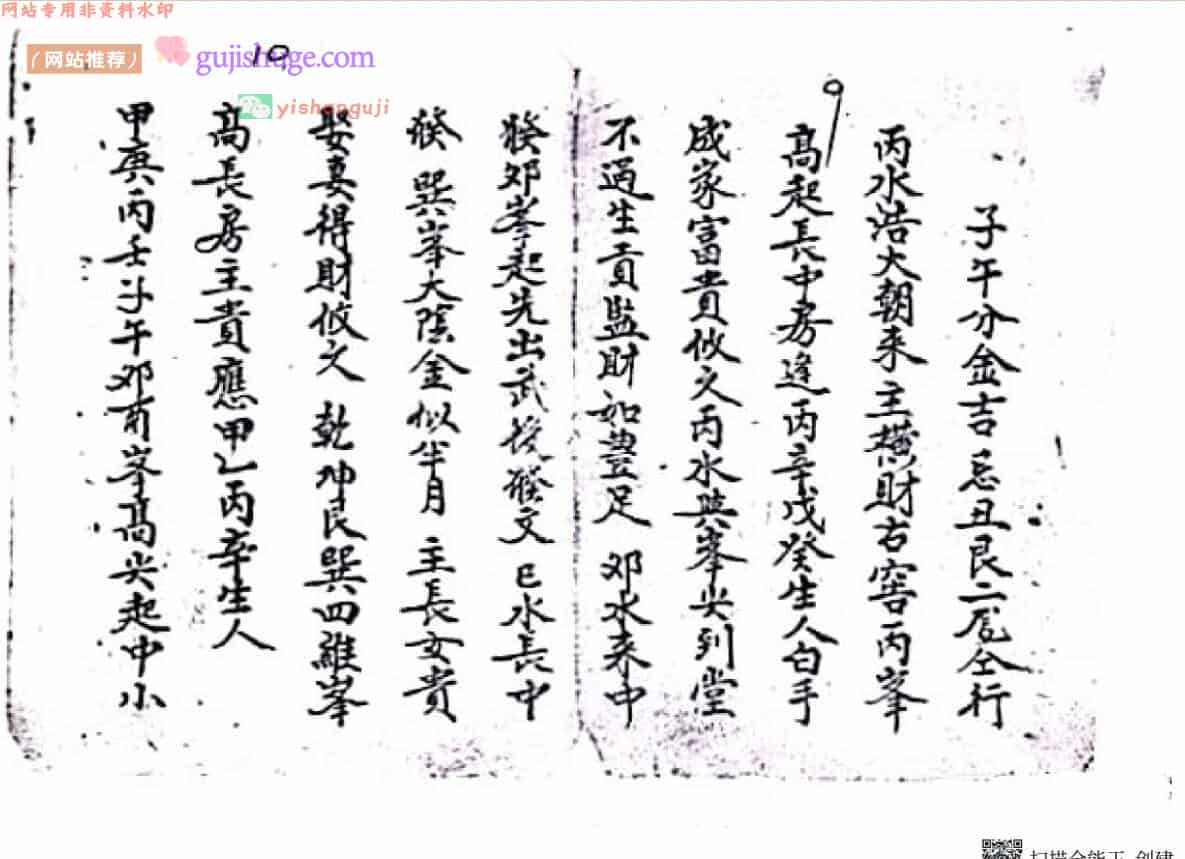 网站专用非资料水印
（网站推荐）
gujishuge.com
yishanguji
9
子午分金吉 忌丑艮二龙仝行
丙水浩大朝来主横財右窖丙峯
高起長中房逢丙辛戊癸生人白手
成家富貴攸久丙水與峯尖到堂
不过生貢監財如豊足 邓水来中
發邓峯起先出武挍發文 巳水長中
10
發 巽峯大陰金似半月 主長女貴
娶妻得財攸文 乾坤艮巽四維峯
高長房主貴應甲乙丙辛生人
甲庚丙壬子午邓酉峯高尖起中小
扫描全能王 创建